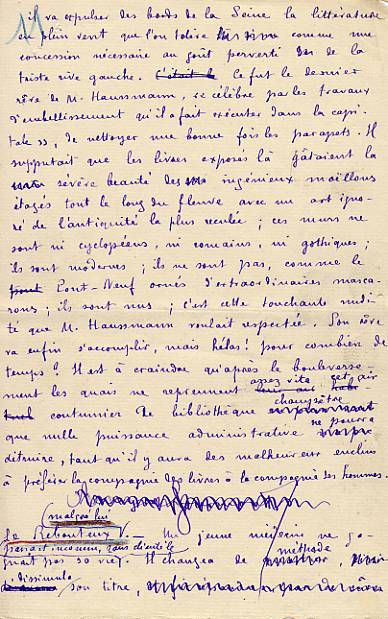 il va expulser des bords de la Seine la littérature
en plein vent que l'on tolère comme une
concession nécessaire au goût perverti de la
triste rive gauche. C'était le Ce fut le dernier
rêve de M. Haussmann, ce célèbre par les travaux
d'embellissement qu'il a fait exécuter dans la capi-
tale », de nettoyer une bonne fois les parapets. Il
supputait que les livres exposés là gâtaient la
sévère beauté des ingénieux moëllons
étagés tout le long du fleuve avec un art igno-
ré de l'antiquité la plus reculée ; ces murs ne
sont ni cyclopéens, ni romains, ni gothiques ;
ils sont modernes ; ils ne sont pas, comme le
Pont-Neuf ornés d'extraordinaires masca-
rons ; ils sont nus ; c'est cette touchante nudi-
té que M. Haussmann voulait respectée. Son rêve
va enfin s'accomplir, mais hélas! pour combien de
temps? Il est à craindre qu'après le bouleverse-
ment les quais ne reprennent assez vite cet air
coutumier de bibliothèque champêtre
que nulle puissance administrative ne pourra
détruire, tant qu'il y aura des malheureux enclins
à préférer la compagnie des livres à la compagnie des hommes.
malgré lui
Le Rebouteux V. — Un jeune médecin ne ga-
passant inconnu, sans clientèle
gnait pas sa vie. Il changea de méthode
dissimula son titre,